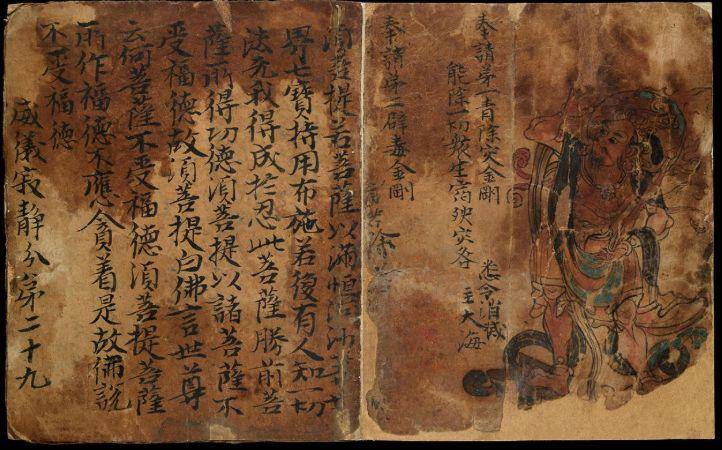 奉請第一青除灾金剛
能除一切類生宿殃灾咎
悉令消滅
主大海
奉請第二辟毒金剛
須菩提若菩薩以滿恒河沙等世
界七寶持用布施若復有人知一切
法无我得成於忍此菩薩勝前菩
薩所得切德須菩提以諸菩薩不
受福德故須菩提白佛言世尊
云何菩薩不受福德須菩提菩薩
所作福德不應貪着是故佛說
不受福德
威儀寂靜分第二十九